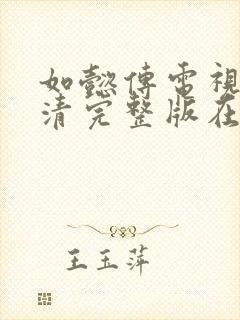 如懿傳電視
清完整版在
王玉萍